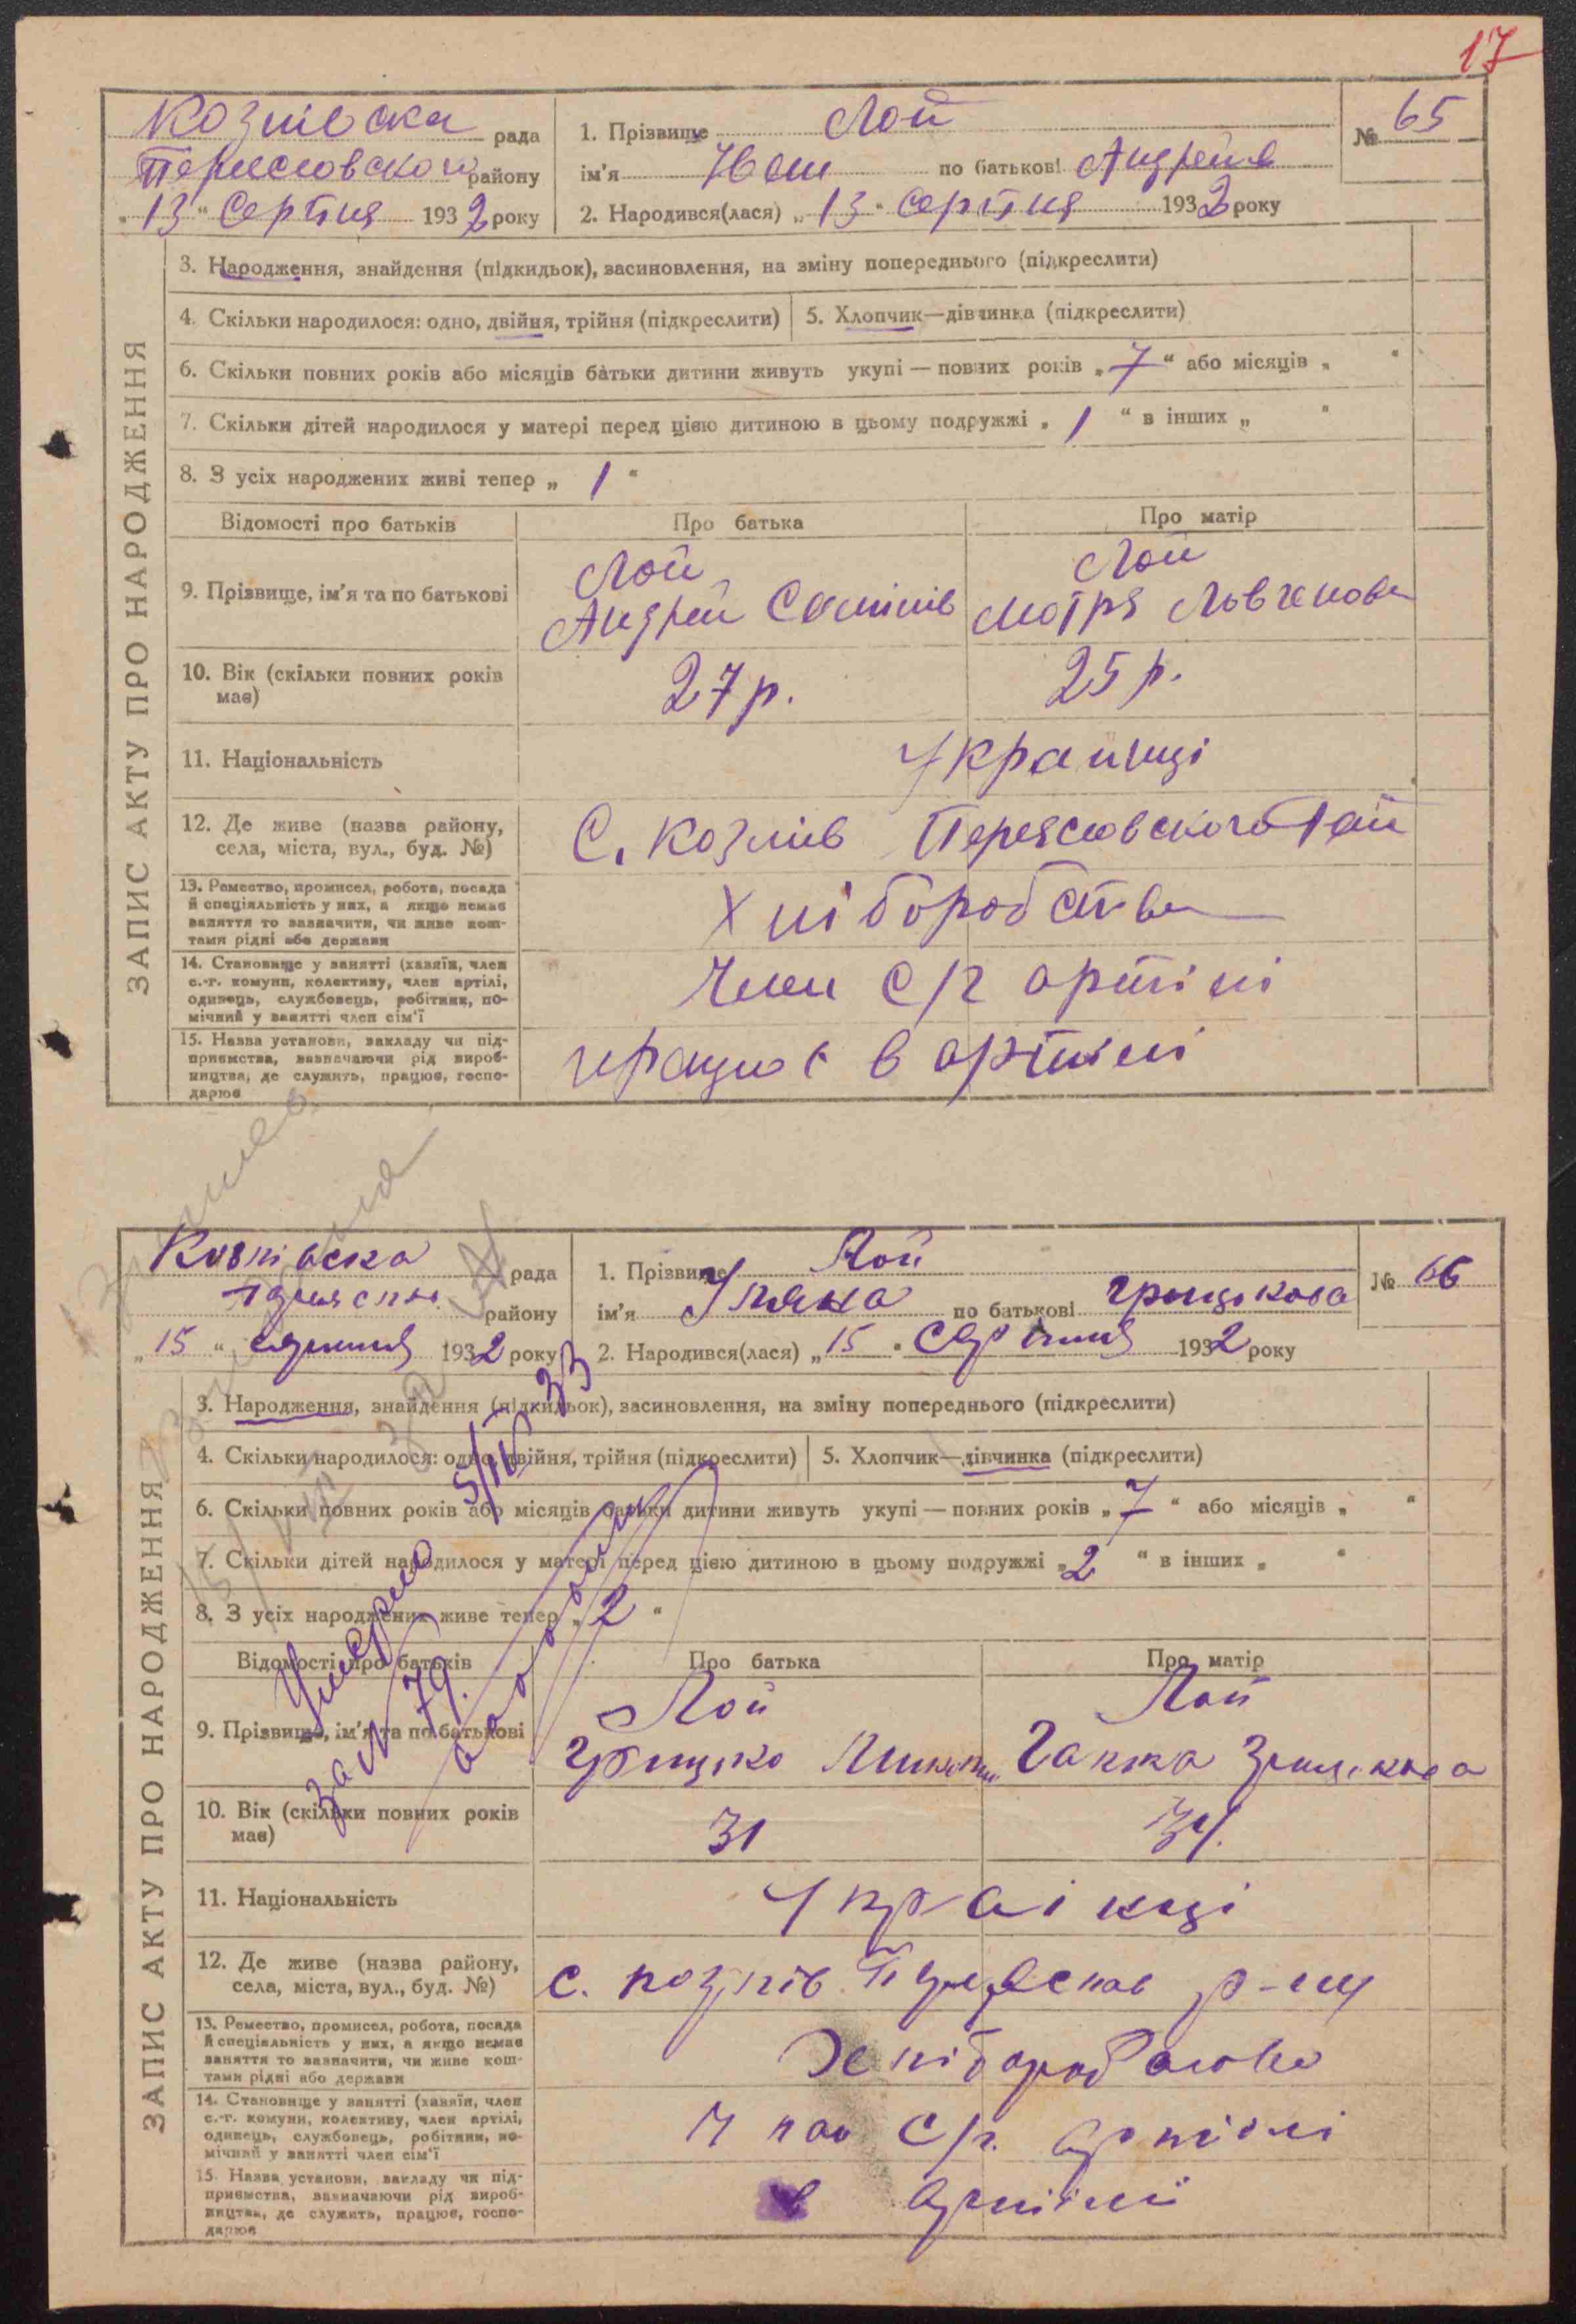 17
Козлівска рада
Переясловского району
„13“ Серпня 1932 року
1. Прізвище Лой
ім'я Іван по батькові Андреїв
2. Народився(лася) „13“ серпня 1932 року
№ 65
ЗАПИС АКТУ ПРО НАРОДЖЕННЯ
3. Народження, знайдення (підкидьок), засиновлення, на зміну попереднього (підкреслити)
4. Скільки народилося: одно, двійня, трійня (підкреслити) 5. Хлопчик—дівчинка (підкреслити)
6. Скільки повних років або місяців батьки дитини живуть укупі — повних років „7“ або місяців „ “
7. Скільки дітей народилося у матері перед цією дитиною в цьому подружжі „1“ в інших „ “
8. З усіх народжених живі тепер „1“
Відомості про батьків Про батька Про матір
9. Прізвище, ім'я та по батькові
Лой
Андрей
Лой
Мотря
10. Вік (скільки повних років має) 27 р. 25 р.
11. Національність Українці
12. Де живе (назва району, села, міста, вул., буд. №)
С. Козлів Переясловского Рай
13. Ремество, промисел, робота, посада й спеціяльність у них, а якщо немає заняття то зазначити, чи живе коштами рідні або держави
Хліборобства
14. Становище у занятті (хазяїн, член с.-г. комуни, колективу, член артілі, одинець, службовець, робітник, помічний у занятті член сім'ї
Член с/г артілі
15. Назва установи, закладу чи підприємства, зазначаючи рід виробництва, де служить, працює, господарює
працює в артілі
Козлівска рада
району
„15“ серпня 1932 року
1. Прізвище Лой
ім'я Уляна по батькові Грицькова
2. Народився(лася) „15“ серпня 1932 року
№ 66
ЗАПИС АКТУ ПРО НАРОДЖЕННЯ
3. Народження, знайдення (підкидьок), засиновлення, на зміну попереднього (підкреслити)
4. Скільки народилося: одно, двійня, трійня (підкреслити) 5. Хлопчик—дівчинка (підкреслити)
6. Скільки повних років або місяців батьки дитини живуть укупі — повних років „7“ або місяців „ “
7. Скільки дітей народилося у матері перед цією дитиною в цьому подружжі „2“ в інших „ “
8. З усіх народжених живе тепер „2“
Умерло 5/IV 33
за № 79.
Відомості про батьків Про батька Про матір
9. Прізвище, ім'я та по батькові
Лой
Грицько
Лой
Гапка
10. Вік (скільки повних років має) 31
11. Національність Українці
12. Де живе (назва району, села, міста, вул., буд. №)
с. Козлів Переяслав р-ну
13. Ремество, промисел, робота, посада й спеціяльність у них, а якщо немає заняття то зазначити, чи живе коштами рідні або держави
Хліборобство
14. Становище у занятті (хазяїн, член с.-г. комуни, колективу, член артілі, одинець, службовець, робітник, помічний у занятті член сім'ї
с/г. артілі
15. Назва установи, закладу чи підприємства, зазначаючи рід виробництва, де служить, працює, господарює
в артілі